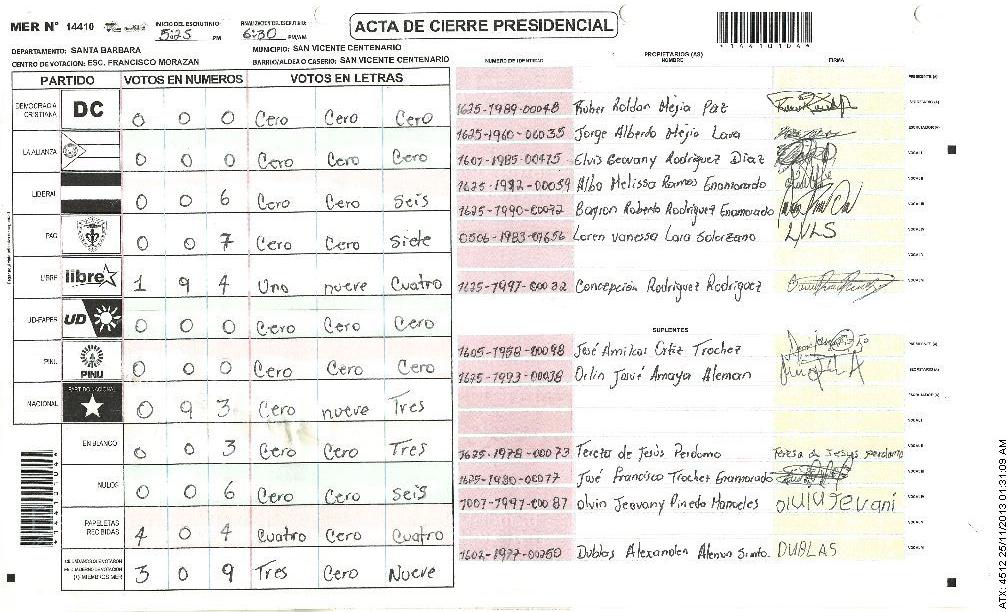 MER N° 14410
INICIO DEL ESCRUTINIO
5:25 PM
6:30 PM/AM
ACTA DE CIERRE PRESIDENCIAL
*14410104*
DEPARTAMENTO: SANTA BARBARA
MUNICIPIO: SAN VICENTE CENTENARIO
CENTRO DE VOTACION: ESC. FRANCISCO MORAZAN
BARRIO/ALDEA O CASERIO: SAN VICENTE CENTENARIO
PARTIDO VOTOS EN NUMEROS VOTOS EN LETRAS
DEMOCRACIA CRISTIANA DC 0 0 0 Cero Cero Cero
LA ALIANZA 0 0 0 Cero Cero Cero
LIBERAL 0 0 6 Cero Cero Seis
PAC 0 0 7 Cero Cero Siete
LIBRE libre 1 9 4 Uno nueve Cuatro
UD-FAPER UD 0 0 0 Cero Cero Cero
PINU PINU 0 0 0 Cero Cero Cero
NACIONAL PARTIDO NACIONAL 0 9 3 Cero nueve Tres
EN BLANCO 0 0 3 Cero Cero Tres
NULOS 0 0 6 Cero Cero Seis
PAPELETAS RECIBIDAS 4 0 4 Cuatro Cero Cuatro
3 0 9 Tres Cero Nueve
NUMERO DE IDENTIDAD
PROPIETARIOS (AS)
NOMBRE
FIRMA
PRESIDENTE (A)
1625-1989-00048 Rober Roldan Mejia Paz SECRETARIO (A)
1625-1960-00035 Jorge Alberto Mejia Lara ESCRUTADOR (A)
1607-1985-00475 Elvis Geovany Rodriguez Diaz VOCAL I
1625-1992-00059 Alba Melissa Ramos Enamorado VOCAL II
1625-1990-00072 Bayron Roberto Rodriguez Enamorado VOCAL III
0506-1983-01656 Loren Vanessa Lara Solorzano LVLS VOCAL IV
1625-1997-00032 Concepción Rodriguez Rodriguez
SUPLENTES
1605-1958-00098 José Amilcar Ortiz Trochez PRESIDENTE (A)
1625-1993-00038 Orlin Josué Amaya Aleman SECRETARIO (A)
ESCRUTADOR (A)
1625-1978-00073 Tereza de Jesús Perdomo Teresa de Jesus perdomo
1625-1980-00077 José Francisco Trochez Enamorado
1007-1997-00087 olvin Jeovany Pineda
1602-1977-00250 Dublas DUBLAS
ATX: 4512 25/11/2013 01:31:09 AM